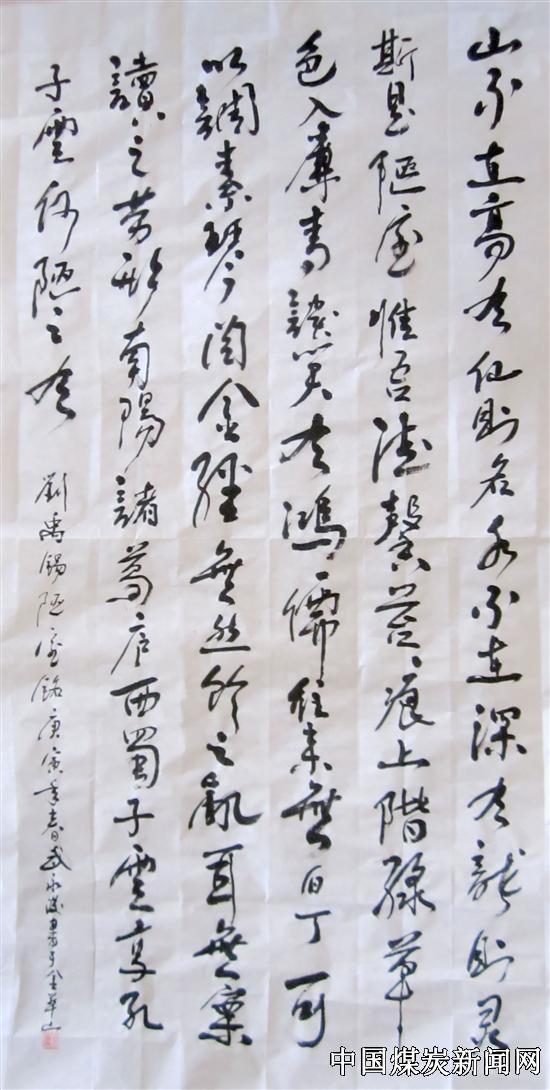 山不在高有仙則名水不在深有龍則灵
斯是陋室惟吾德馨苔痕上階綠草
色入簾青談笑有鴻儒往来無白丁可
以調素琴閱金經無丝竹之亂耳無案
讀之劳形南陽諸葛庐西蜀子雲亭孔
子雲何陋之有
劉禹錫陋室銘庚寅年春武永書于金華山
中国煤炭新闻网